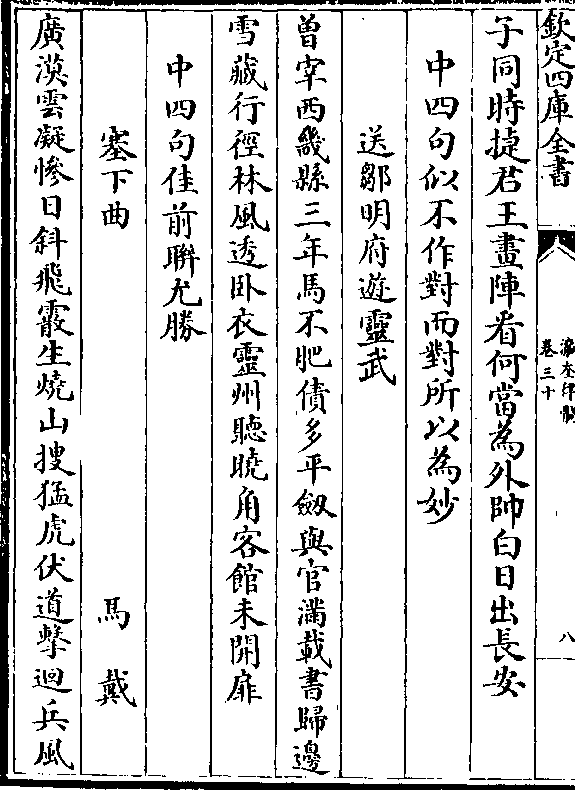 欽定四庫全書
瀛奎律髓
卷三十
八
子同時捷君王畫陣看何當為外帥白日出長安
中四句似不作對而對所以為妙
送鄒明府遊靈武
曾宰西畿縣三年馬不肥債多平劔與官滿載書歸邊
雪藏行徑林風透卧衣靈州聽曉角客館未開扉
中四句佳前聨尤勝
塞下曲
馬戴
廣漠雲凝慘日斜飛霰生燒山搜猛虎伏道擊迴兵風